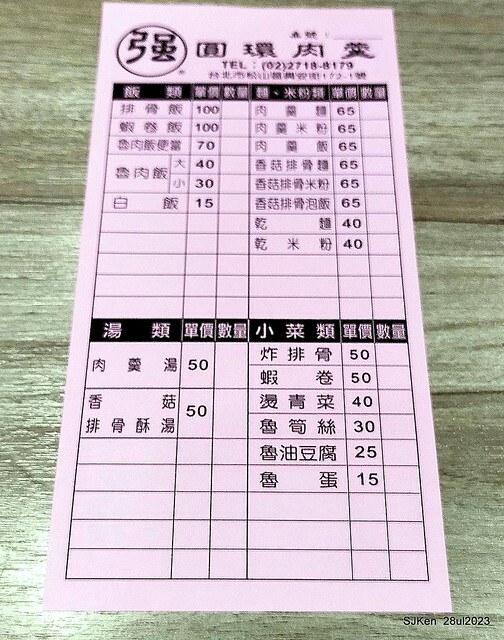 強
桌號：
圓環肉羹
TEL：(02)2718-8179
台北市松山區興安街172-1號
飯類 單價 數量 麵、米粉類 單價 數量
排骨飯 100 肉羹麵 65
蝦卷飯 100 肉羹米粉 65
魯肉飯便當 70 肉羹飯 65
魯肉飯 大 40 香菇排骨麵 65
小 30 香菇排骨米粉 65
白飯 15 香菇排骨泡飯 65
乾麵 40
乾米粉 40
湯類 單價 數量 小菜類 單價 數量
肉羹湯 50 炸排骨 50
蝦卷 50
香菇排骨酥湯 50 燙青菜 40
魯筍絲 30
魯油豆腐 25
魯蛋 15
SJKen 28ul2023